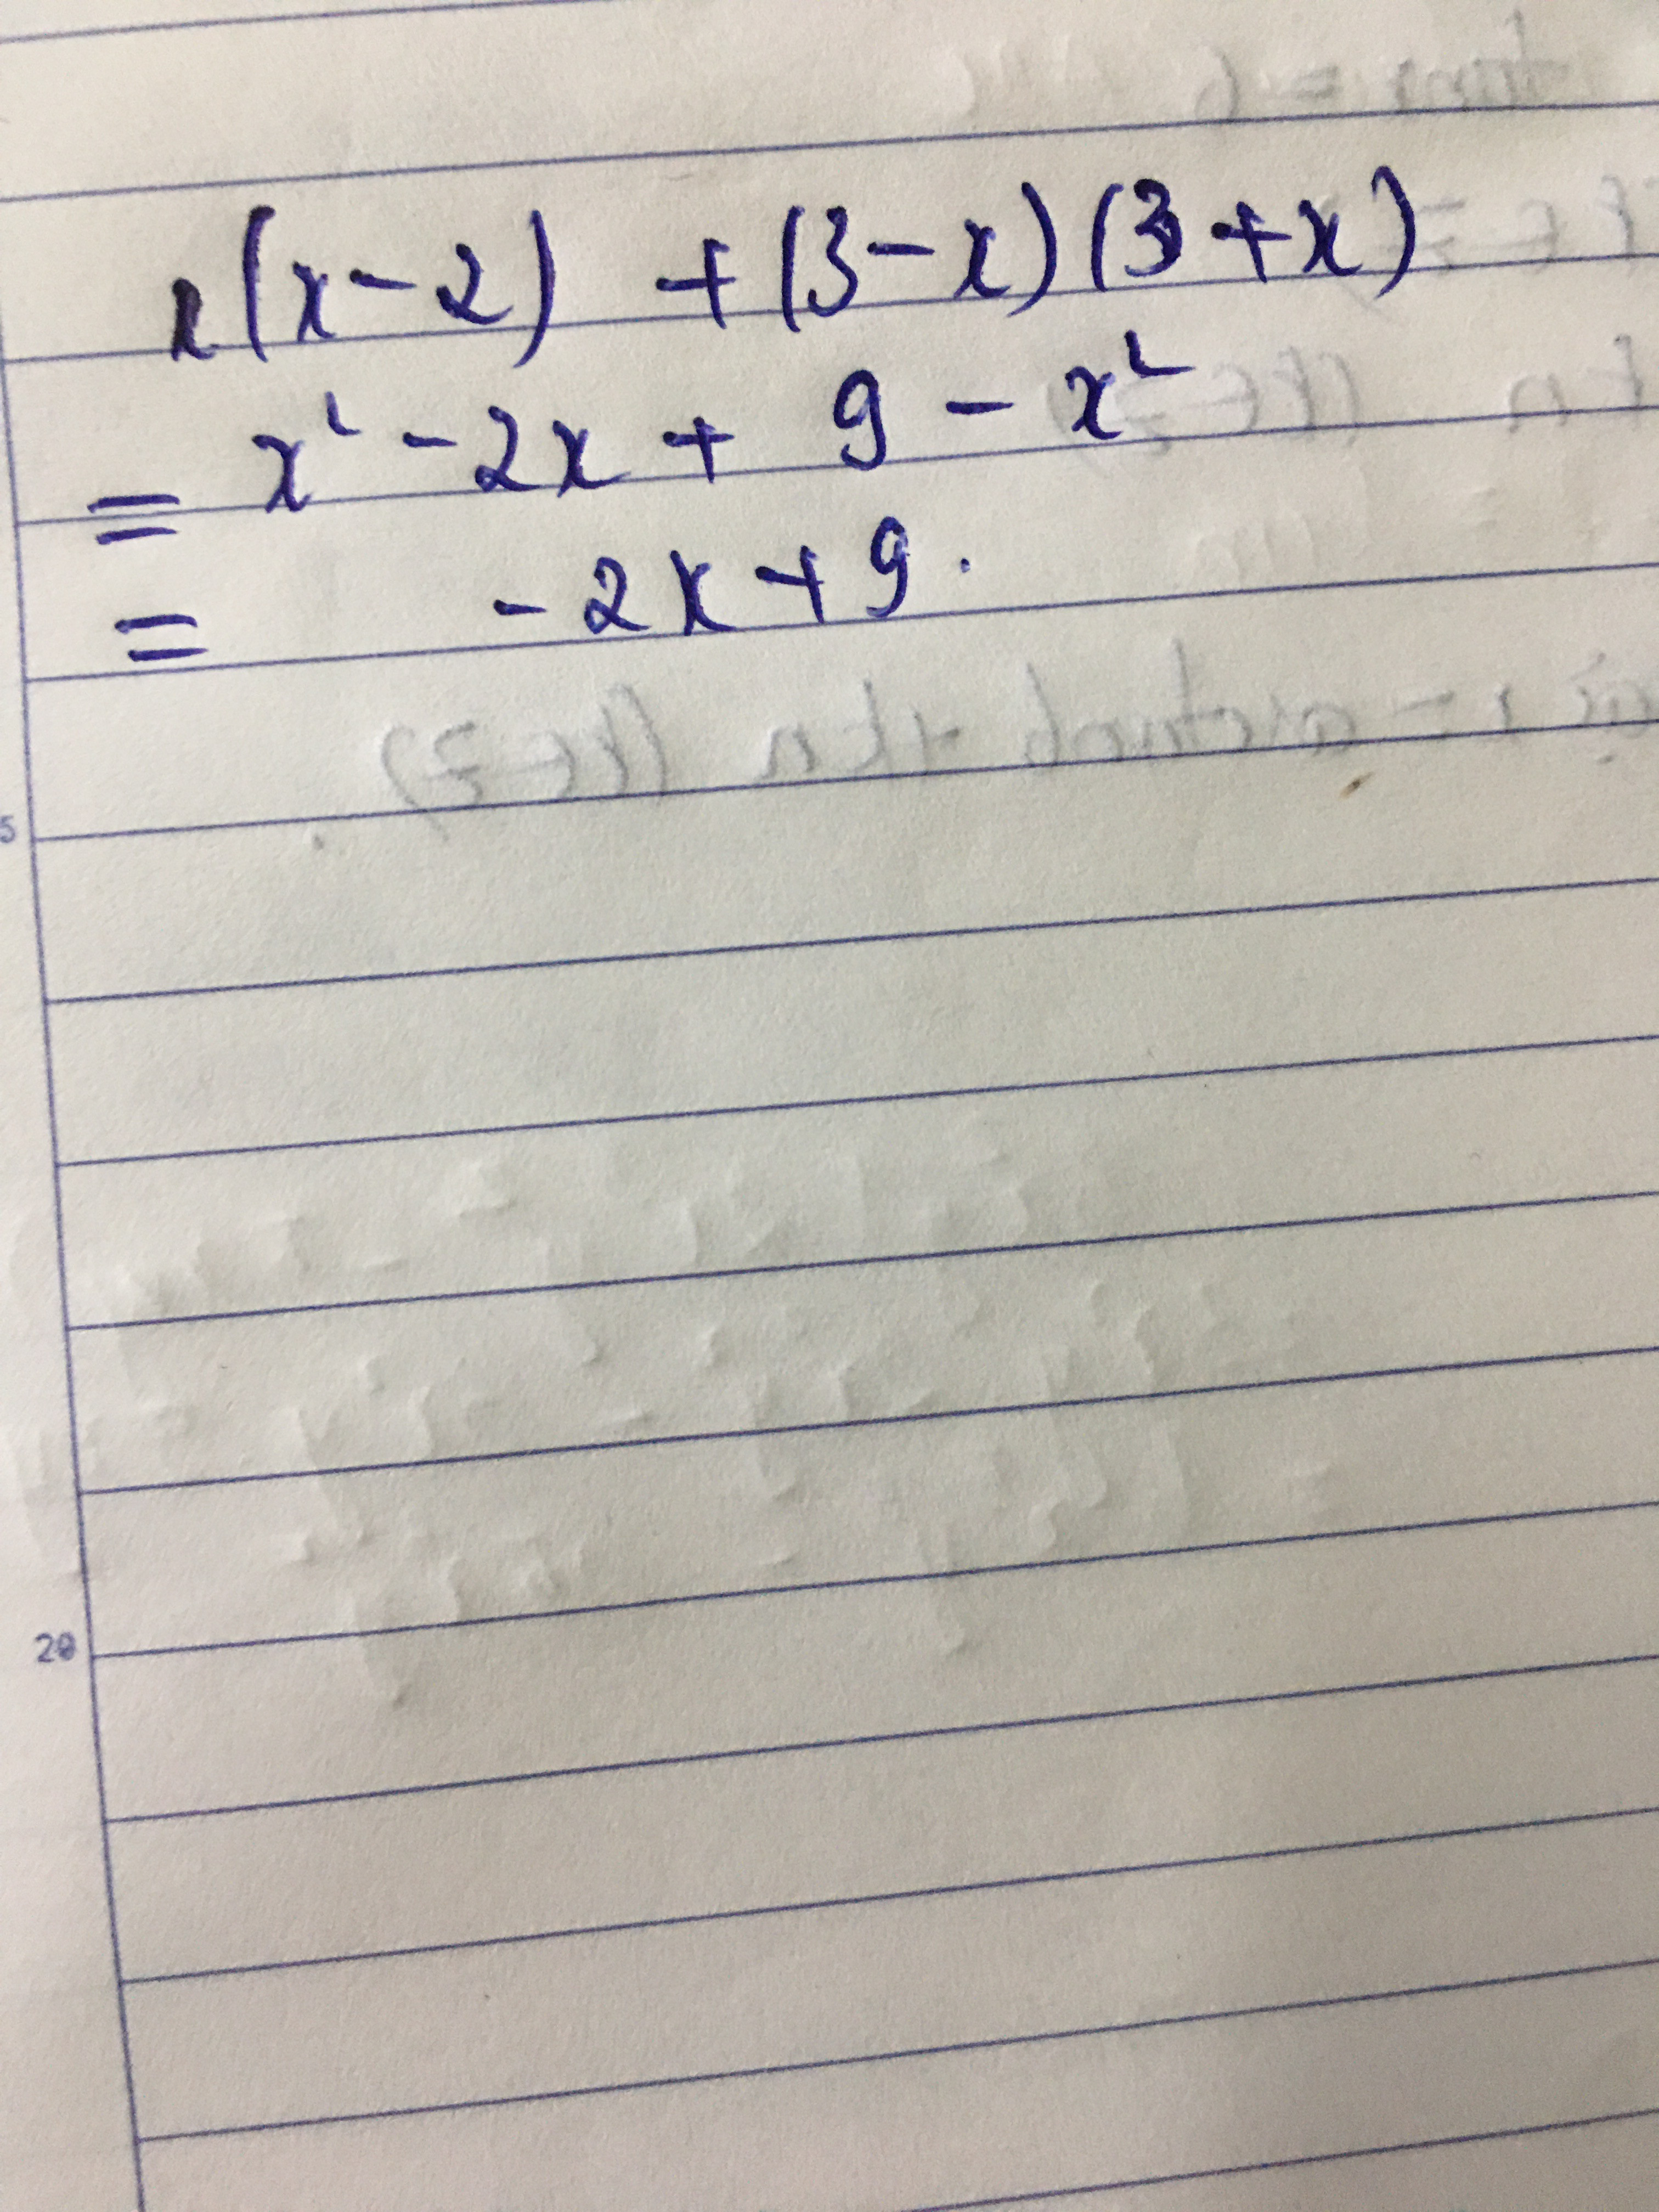 x(x-2) + (3-x)(3+x)
= x² - 2x + 9 - x²
= -2x+9.
5
20